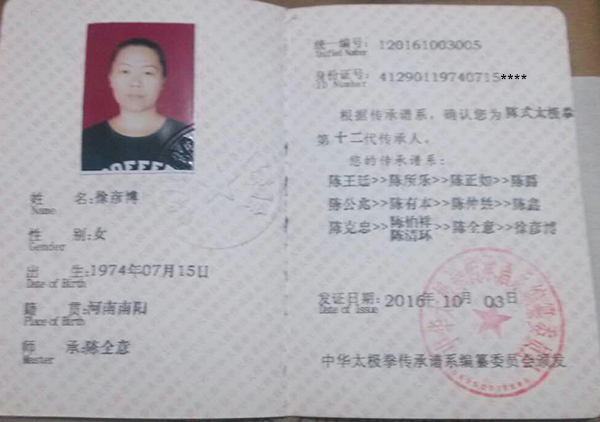 姓 名:徐彦博
Name
性 别:女
Gender
出 生:1974年07月15日
Date of Birth
籍 贯:河南南阳
Place of Birth
师 承:陈全意
Master
统一编号: 120161003005
Unified Number
身份证号: 41290119740715****
ID Number
根据传承谱系,确认您为陈式太极拳
第十二代传承人。
您的传承谱系:
陈王廷>>陈所乐>>陈正如>>陈爵
陈公兆>>陈有本>>陈仲甡>>陈鑫
陈克忠>>陈伯祥>>陈全意>>徐彦博
陈洁环
发证日期: 2016年 10月 03日
Date of Issue
中华太极拳传承谱系编纂委员会颁发